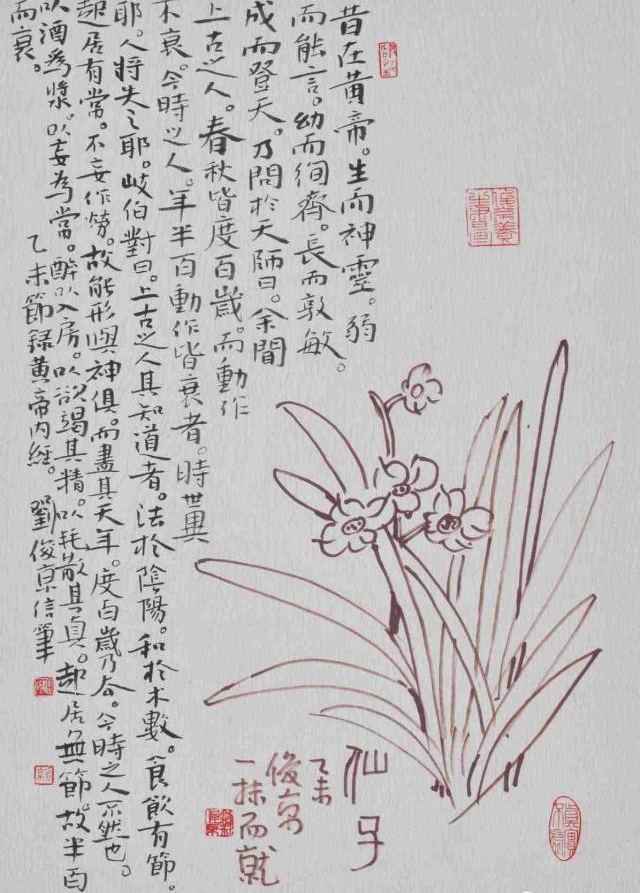 昔在黃帝。生而神靈。弱
而能言。幼而徇齊。長而敦敏。
成而登天。乃問於天師曰。余聞
上古之人。春秋皆度百歲。而動作
不衰。今時之人。年半百動作皆衰者。時世異
耶。人將失之耶。岐伯對曰。上古之人其知道者。法於陰陽。和於术數。食飲有節。
起居有常。不妄作勞。故能形與神俱。而盡其天年。度百歲乃去。今時之人不然也。
以酒為漿。以妄為常。醉以入房。以欲竭其精。以耗散其真。起居無節。故半百
而衰。
乙未節録黃帝内經。劉俊京信筆
仙子
乙未
俊京
一抹而就